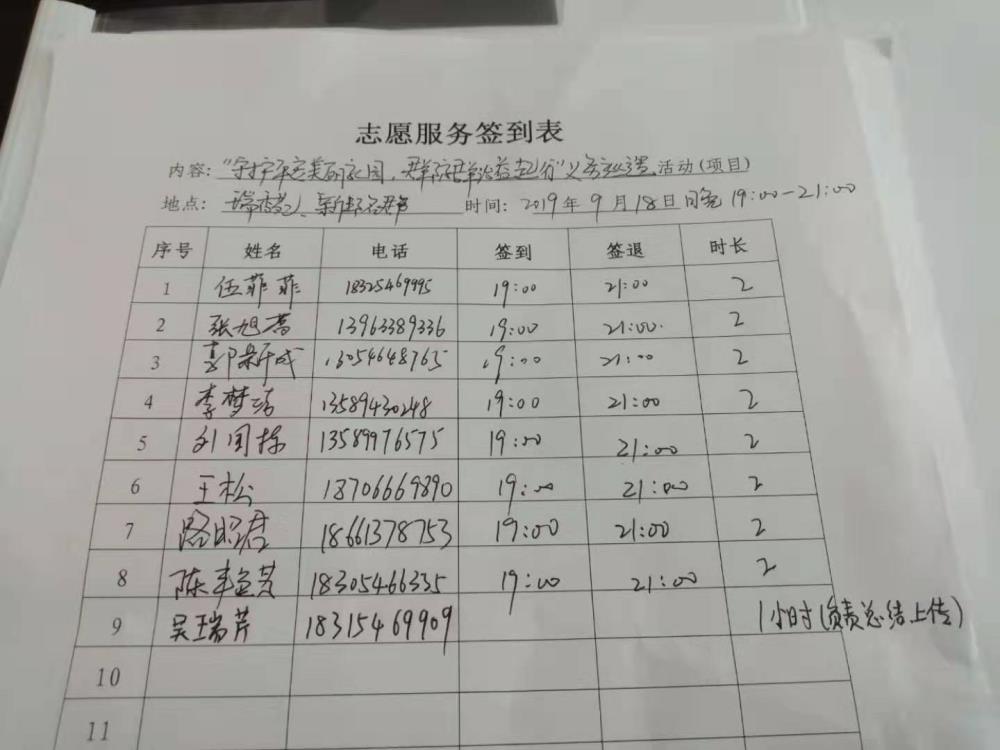 志愿服务签到表
内容：“守护平安美丽家园，群防群治益起行”义务巡逻 活动（项目）
地点： 时间：2019年9月18日 19:00-21:00
序号 姓名 电话 签到 签退 时长
1 伍菲菲 18325469995 19:00 21:00 2
2 张旭 13963389336 19:00 21:00 2
3 郭新成 13054648765 19:00 21:00 2
4 李梦洁 13589430248 19:00 21:00 2
5 刘国栋 13589976575 19:00 21:00 2
6 王松 18706669890 19:00 21:00 2
7 路昭君 18661378753 19:00 21:00 2
8 陈 18305466335 19:00 21:00 2
9 吴瑞芹 18315469909 1小时（负责总结上传）
10
11